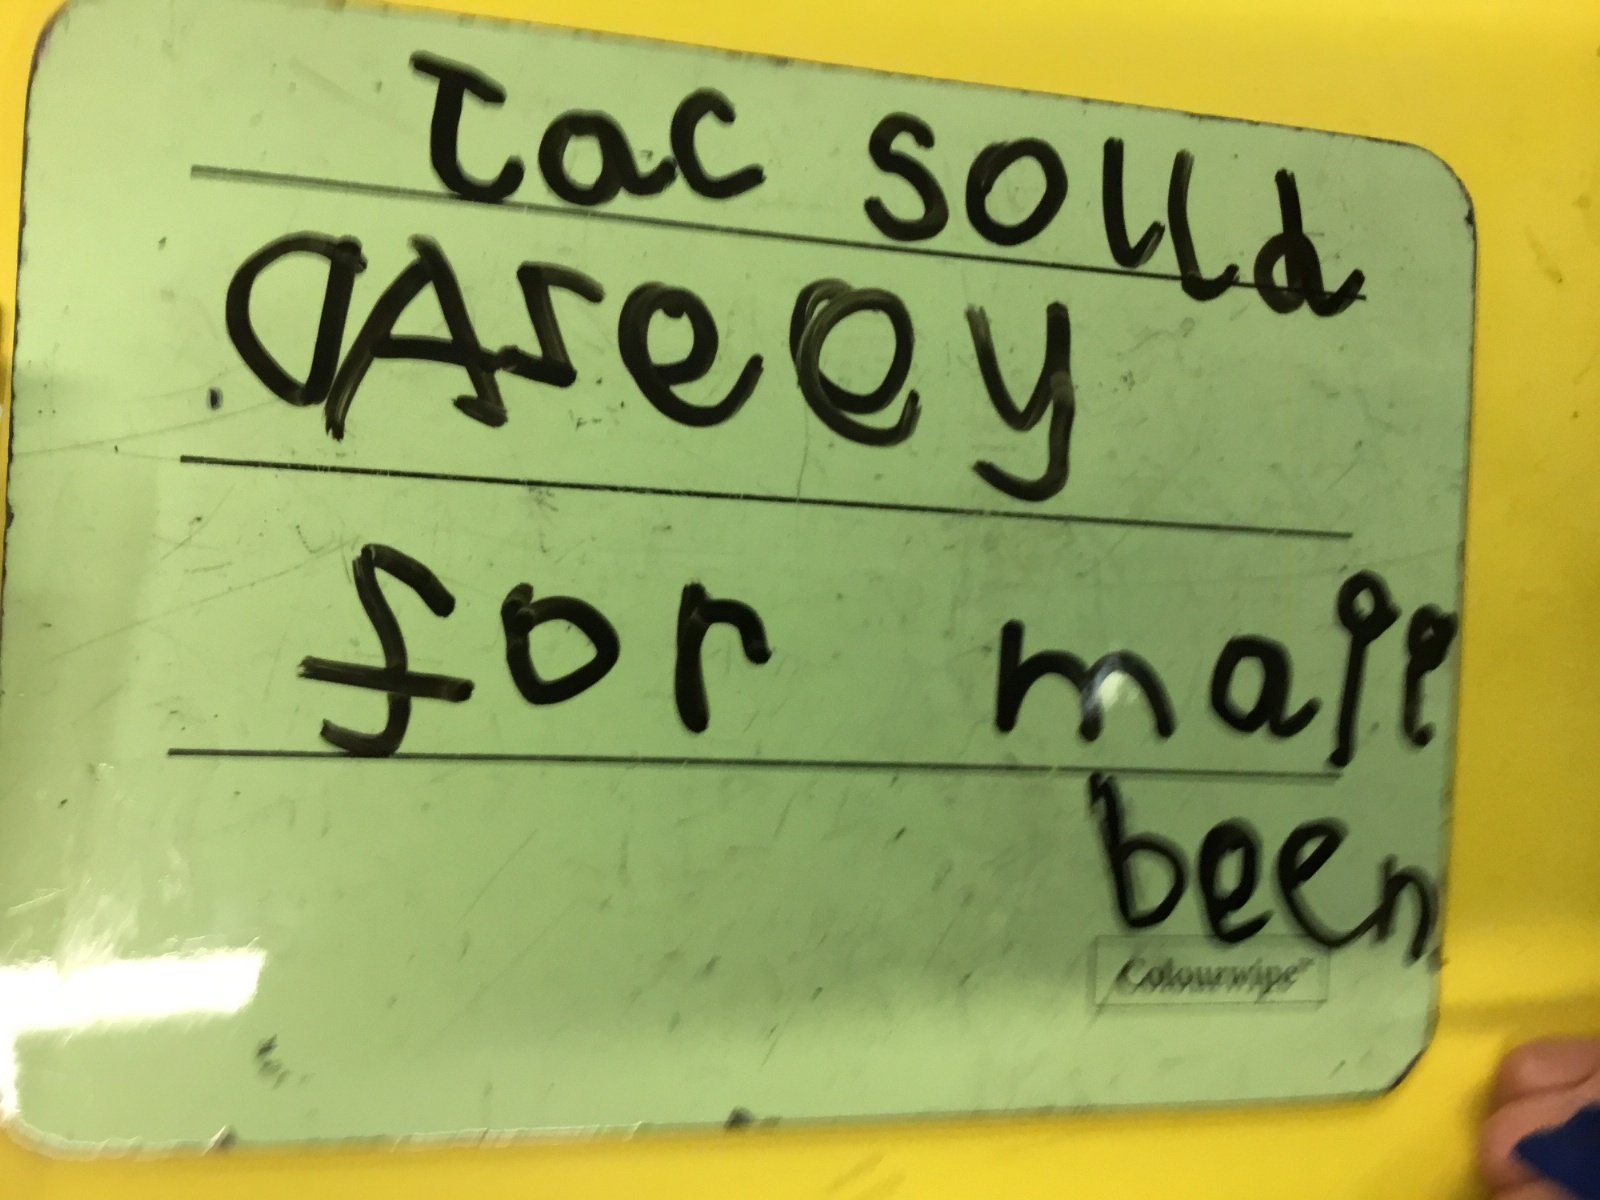 Jac solld
DAseey
for
been
Colourwipe